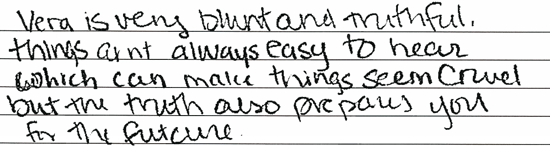 Vera is very blunt and truthful.
things arnt always easy to hear
which can make things seem Cruel
but the truth also prepares you
for the future.